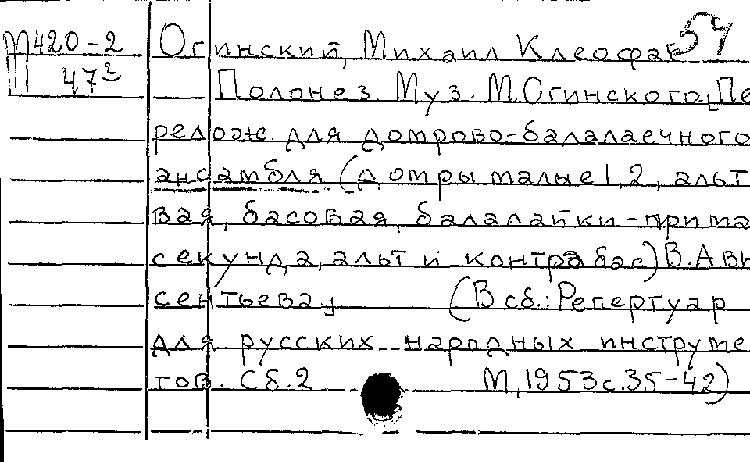 54
М420-2 Огинский, Михаил Клеофак
47² Полонез. Муз. М.Огинского[Пе
релож. для домрово-балалаечного
ансамбля (домры малые 1, 2, альт
вая, басовая, балалайки-прима
секунда, альт и контрабас) В.Авк
сентьева]. (В сб.: Репертуар
для русских народных инструме
тов. Сб.2 М, 1953 с.35-42)